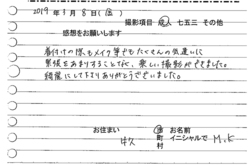 2019年3月8日(金)
撮影項目 成人 七五三 その他
感想をお願いします
着付けの際もメイク等でもたくさんの気遣いに
緊張をあまりすることなく、楽しい撮影ができました。
綺麗にして下さりありがとうございました。
お住まい 市 お名前
牛久 町 イニシャルで M.K
村